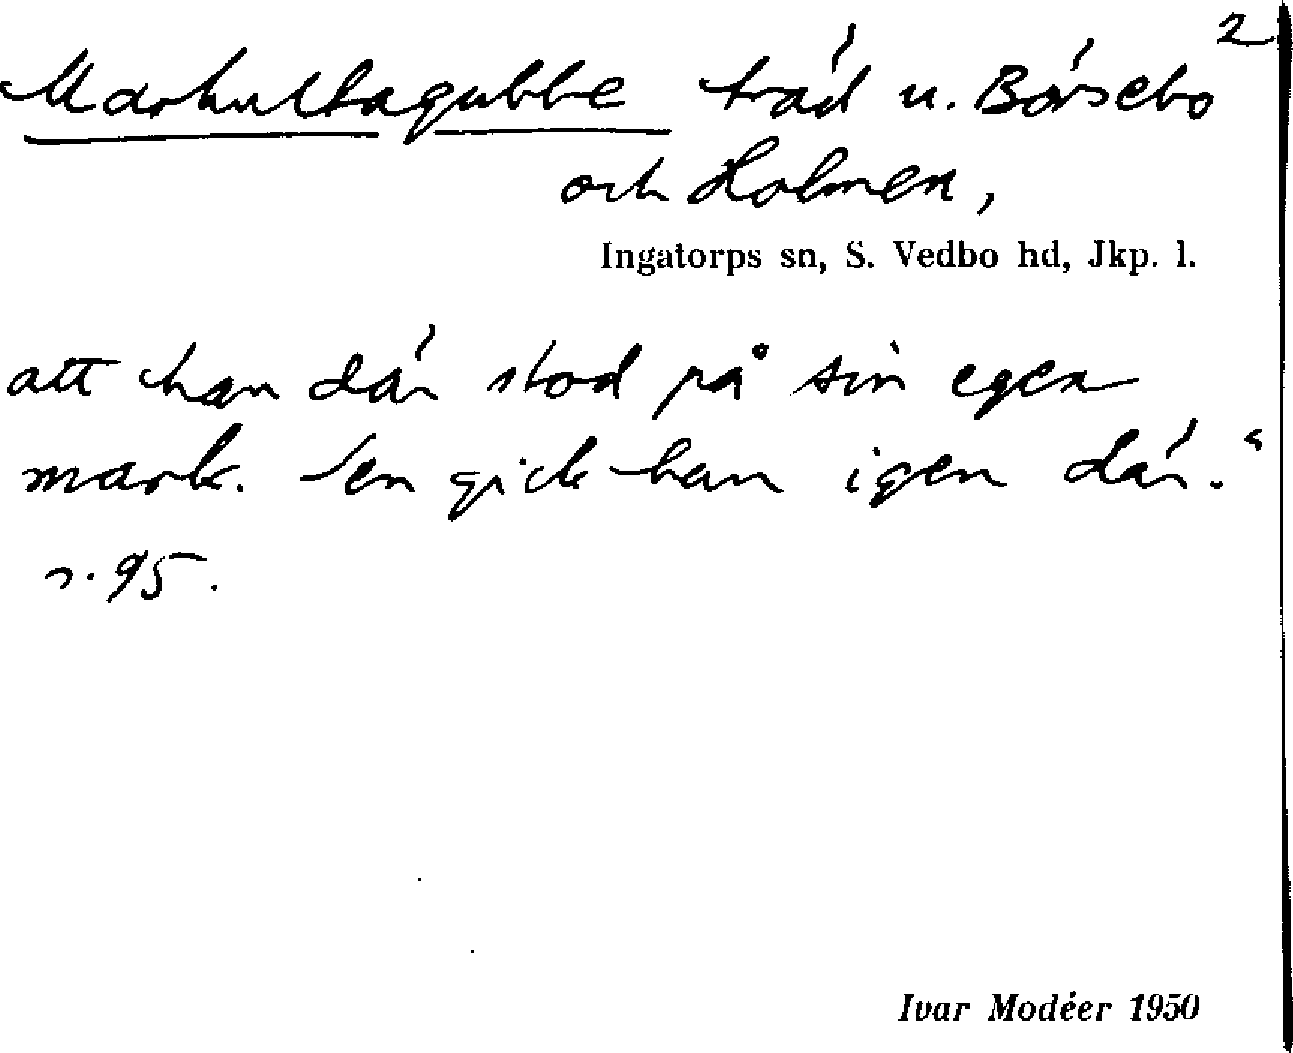 2
Markultagubbe träd u. Börsebo
och Holmen,
Ingatorps sn, S. Vedbo hd, Jkp. l.
att han där stod på sin egen
mark. Sen gick han igen där."
s. 95.
Ivar Modéer 1950